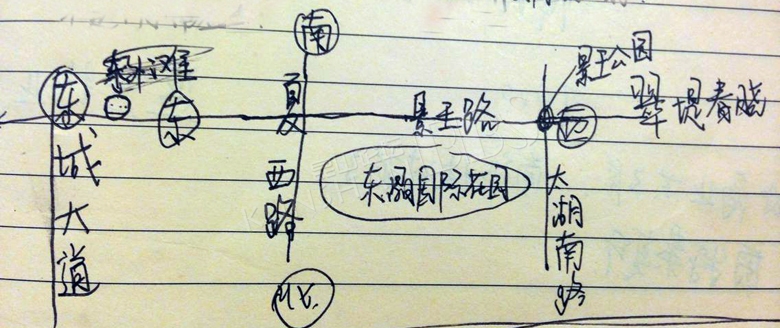 南
东外滩
景王公园
东
东
夏西路
景王路
西
翠堤春晓
城大道
东晶国际花园
太湖南路
北